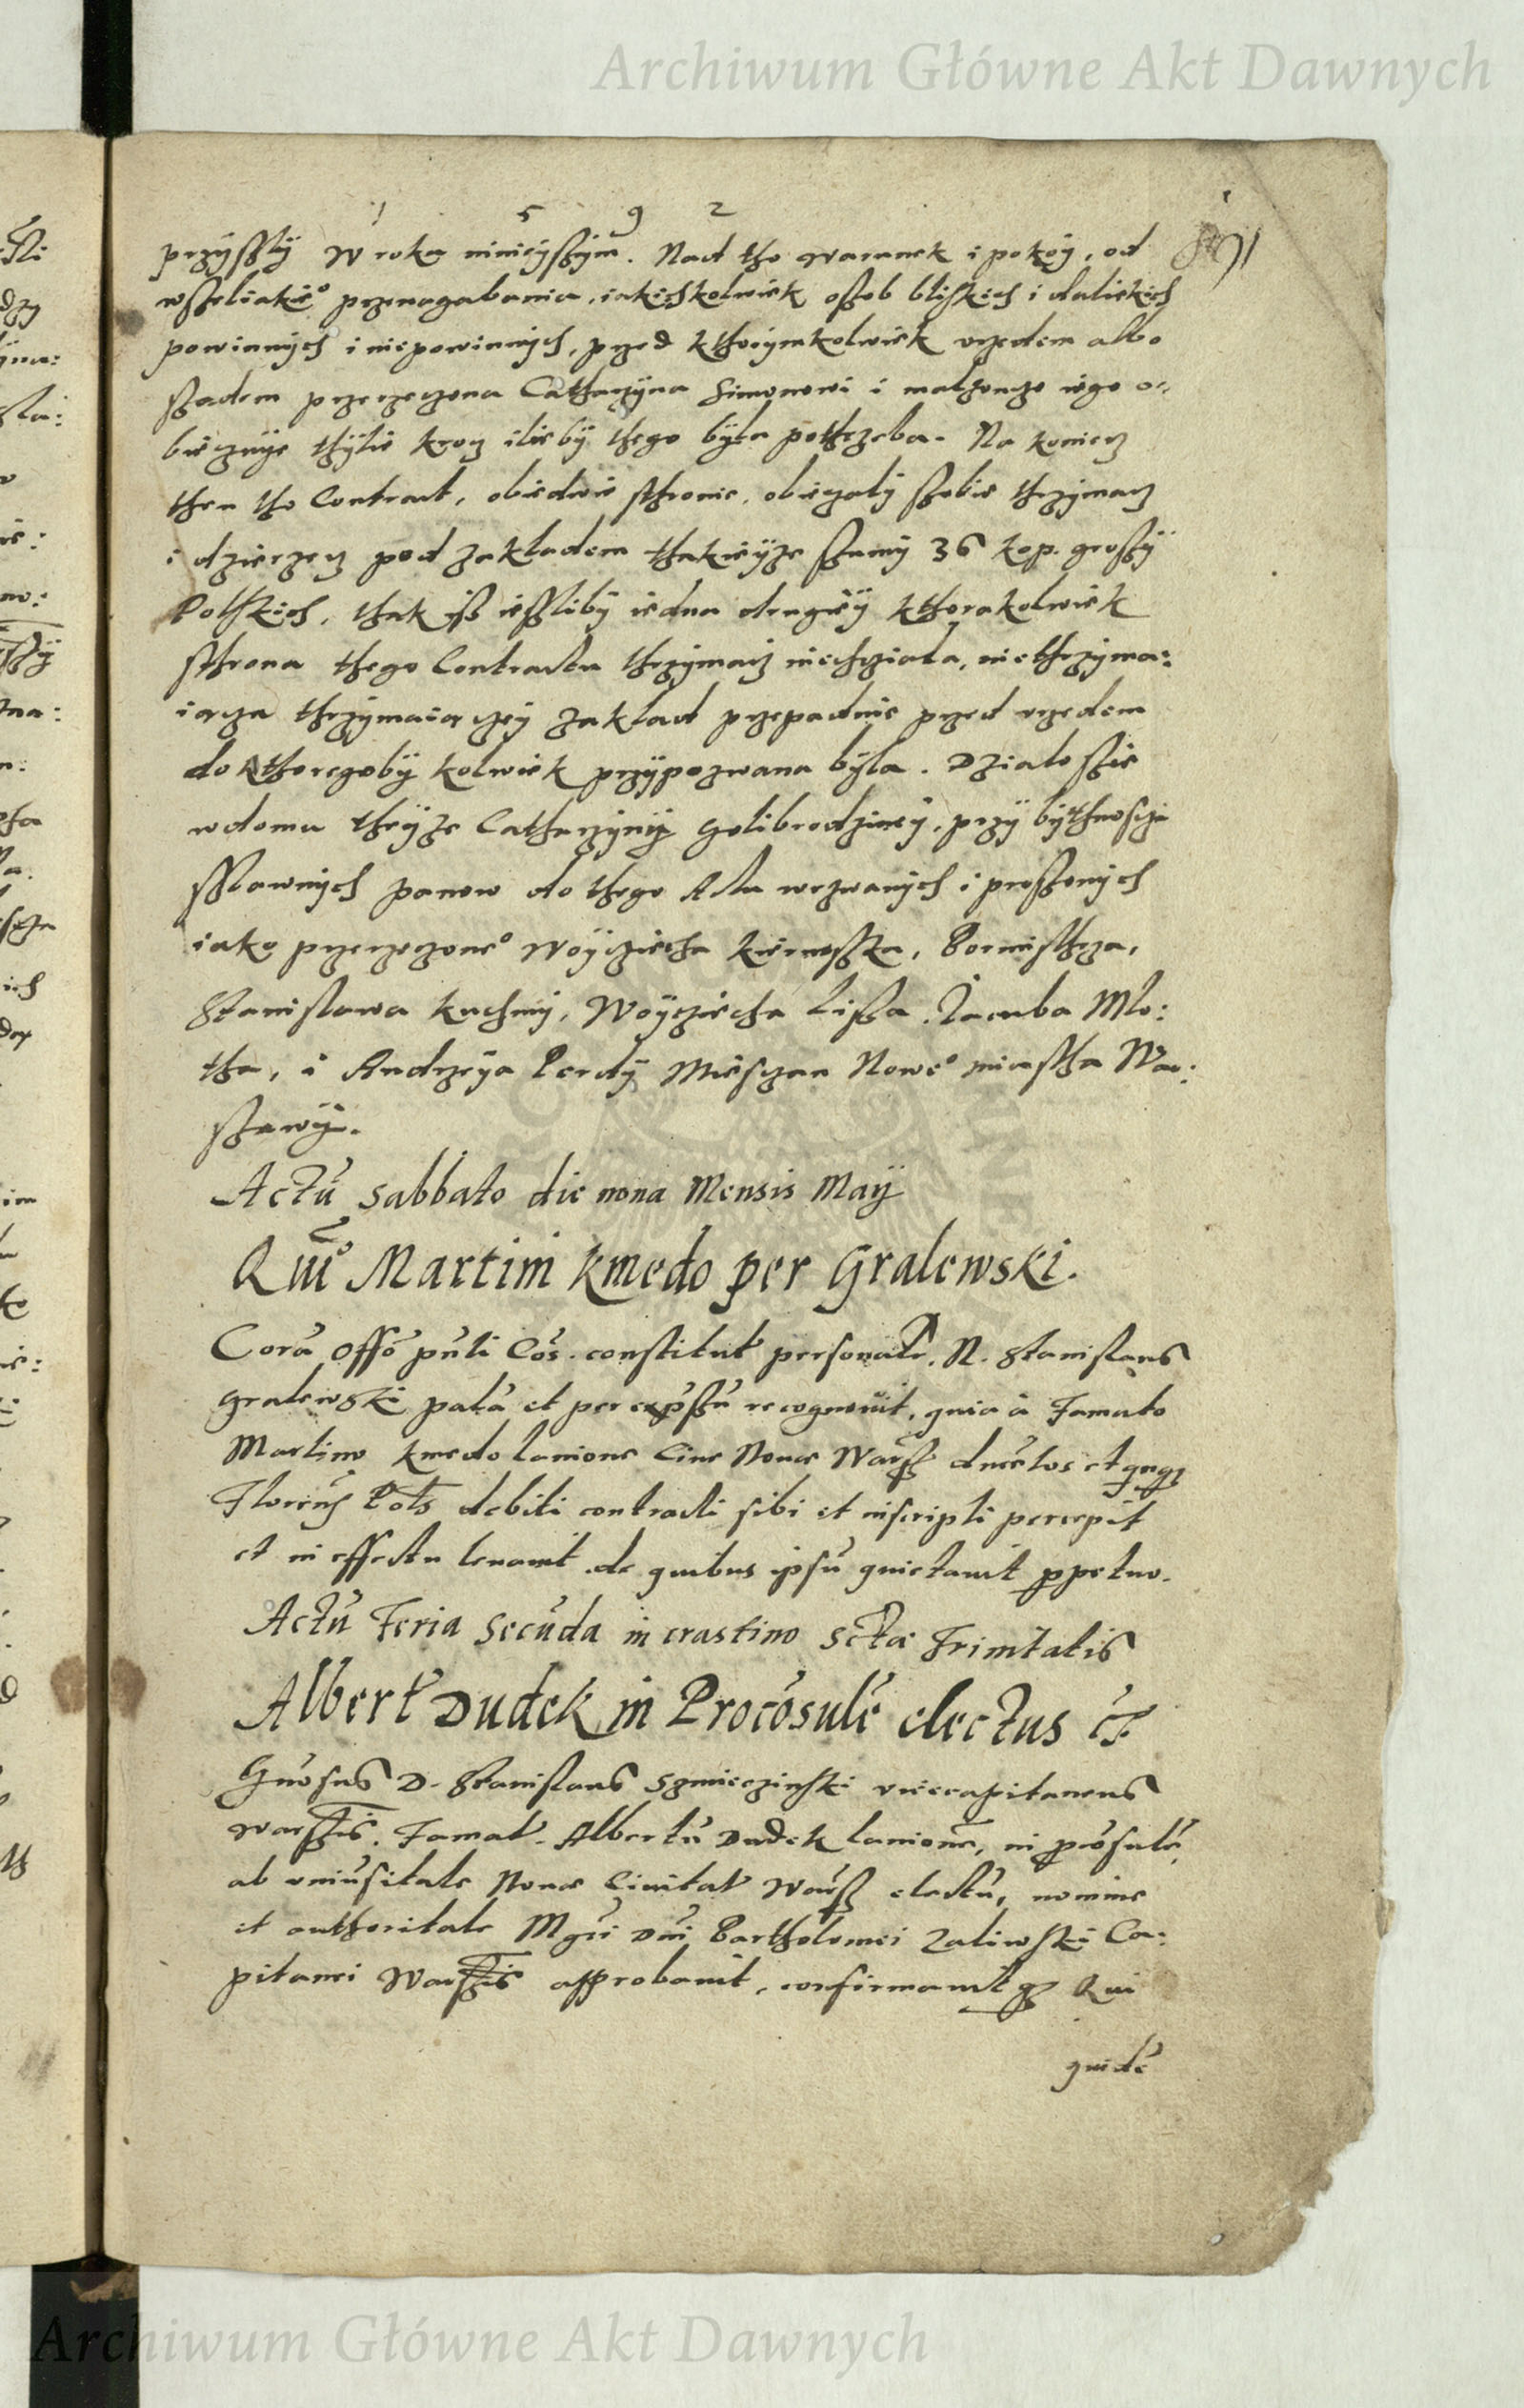 Archiwum Główne Akt Dawnych
1 5 9 2
przÿsslÿ W roku ninieÿszÿm. Nad tho warunek i pokóÿ, od
wszeliakie° przenagabania, iakichkolwiek oszob bliskich i daliekich
powinnÿch i niepowinnÿch, przed kthorÿmkolwiek vrzedem albo
szadem przerzeczona Catharzÿna Simonowi i malzoncze iego o-
bieczuÿe thÿlie krocz ilie bÿ thego bÿla pothrzeba. Na koniecz
then tho Contract, obiedwie sthronie, obieczalÿ szobie thrzÿmacz
i dzierzecz pod zakladem thakieÿze szumÿ 36 kop. groszÿ
Polskich, thak isz iesslibÿ iedna drugieÿ kthorakolwiek
sthrona thego Contractu thrzÿmacz niechcziala, niethrzÿma:
iacza thrzÿmaiaczeÿ zaklad przepadnie przed vrzedem
do kthoregobÿ kolwiek przÿpozwana bÿla. Dzialo szie
w domu theÿze Catharzÿnÿ Golibrodzineÿ, przÿ bÿthnosczi
sslawnÿch panow do thego Actu wezwanÿch i proszonÿch
iako przerzeczone° Woÿcziecha Kiernoszka, Bormisthrza,
Stanislawa Kuchnÿ, Woÿcziecha Lissa, Jacuba Mlo:
tha, i Andrzeÿa Perdÿ Miesczan Nowe° miastha War:
szawÿ.
Actũ sabbato die nona Mensis Maÿ
Quit° Martini Kmedo per Gralewski.
Corã Offo pñti Cõs. constitut personalr, N. Stanislaus
Gralewski palã et per expssũ recognovit, quia à Famato
Martino Kmedo lanione Cive Novæ Warsz ducetos et quqz
Florenos Pols debiti contracti sibi et inscripti percepit
et in effectu levavit, de quibus ipsũ quietavit ppetuo.
Actũ Feria secũda in crastino sctæ Trinitatis
Albert Dudek in Procõsulẽ electus etc
Gñosus D. Stanislaus Szmieczinski vicecapitaneus
Warszis. Famat. Albertũ Dudek lanionẽ, in pcõsulẽ,
ab universitate Novæ Civitat Warsz electũ, nomine
et authoritate Mgci Dñi Bartholomei Zaliwski Ca:
pitanei Warszis approbavit, confirmavitqz Qui
quidẽ
Archiwum Główne Akt Dawnych